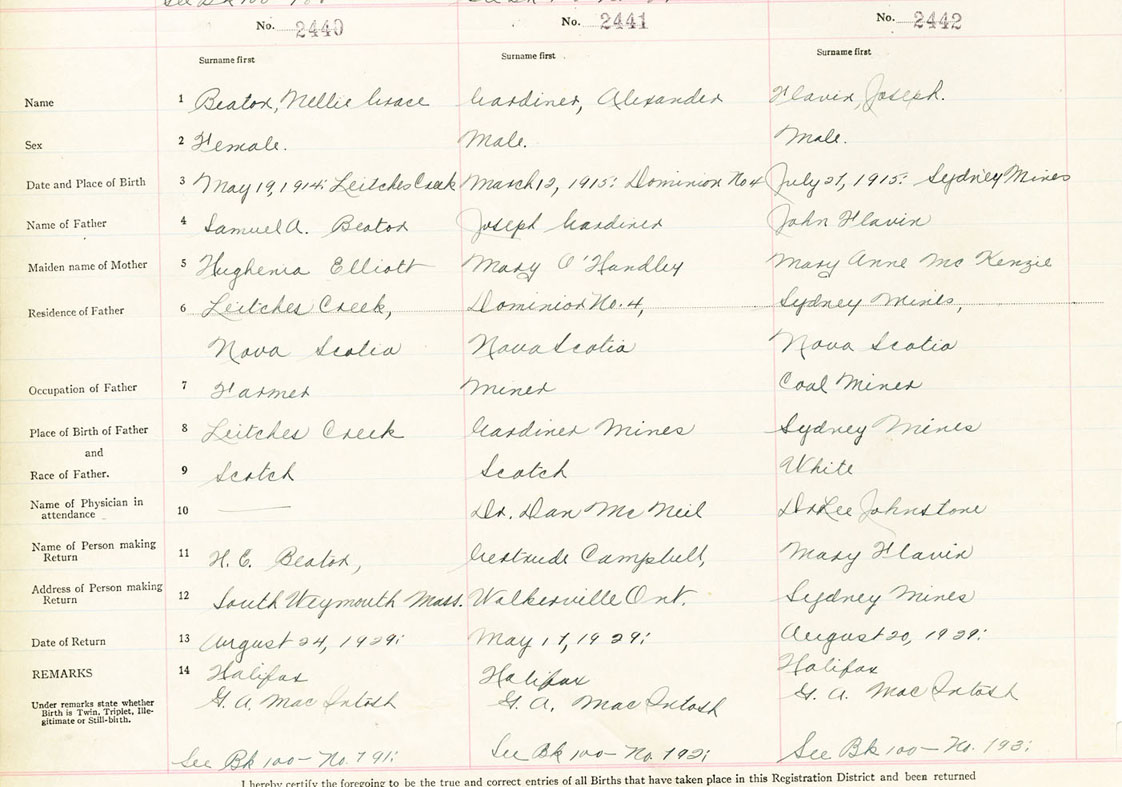 No. 2440 No. 2441 No. 2442
Surname first Surname first Surname first
Name 1 Beaton, Nellie Grace Gardiner, Alexander Flavin, Joseph.
Sex 2 Female. Male. Male.
Date and Place of Birth 3 May 19, 1914: Leitches Creek March 12, 1915: Dominion No 4 July 27, 1915: Sydney Mines
Name of Father 4 Samuel A. Beaton Joseph Gardiner John Flavin
Maiden name of Mother 5 Hughenia Elliott Mary O'Handley Mary Anne Mc Kenzie
Residence of Father 6 Leitches Creek, Dominion No. 4, Sydney Mines,
Nova Scotia Nova Scotia Nova Scotia
Occupation of Father 7 Farmer Miner Coal Miner
Place of Birth of Father 8 Leitches Creek Gardiner Mines Sydney Mines
and
Race of Father. 9 Scotch Scotch White
Name of Physician in attendance 10 Dr. Dan Mc Neil Dr Lee Johnstone
Name of Person making Return 11 H. E. Beaton, Gertrude Campbell, Mary Flavin
Address of Person making Return 12 South Weymouth Mass. Walkerville Ont. Sydney Mines
Date of Return 13 August 24, 1929: May 17, 1929: August 20, 1929:
REMARKS 14 Halifax Halifax Halifax
G. A. Mac Intosh G. A. Mac Intosh G. A. Mac Intosh
Under remarks state whether
Birth is Twin, Triplet, Ille-
gitimate or Still-birth.
See Bk 100 - No. 191: See Bk 100 - No. 192: See Bk 100 - No. 193:
I hereby certify the foregoing to be the true and correct entries of all Births that have taken place in this Registration District and been returned